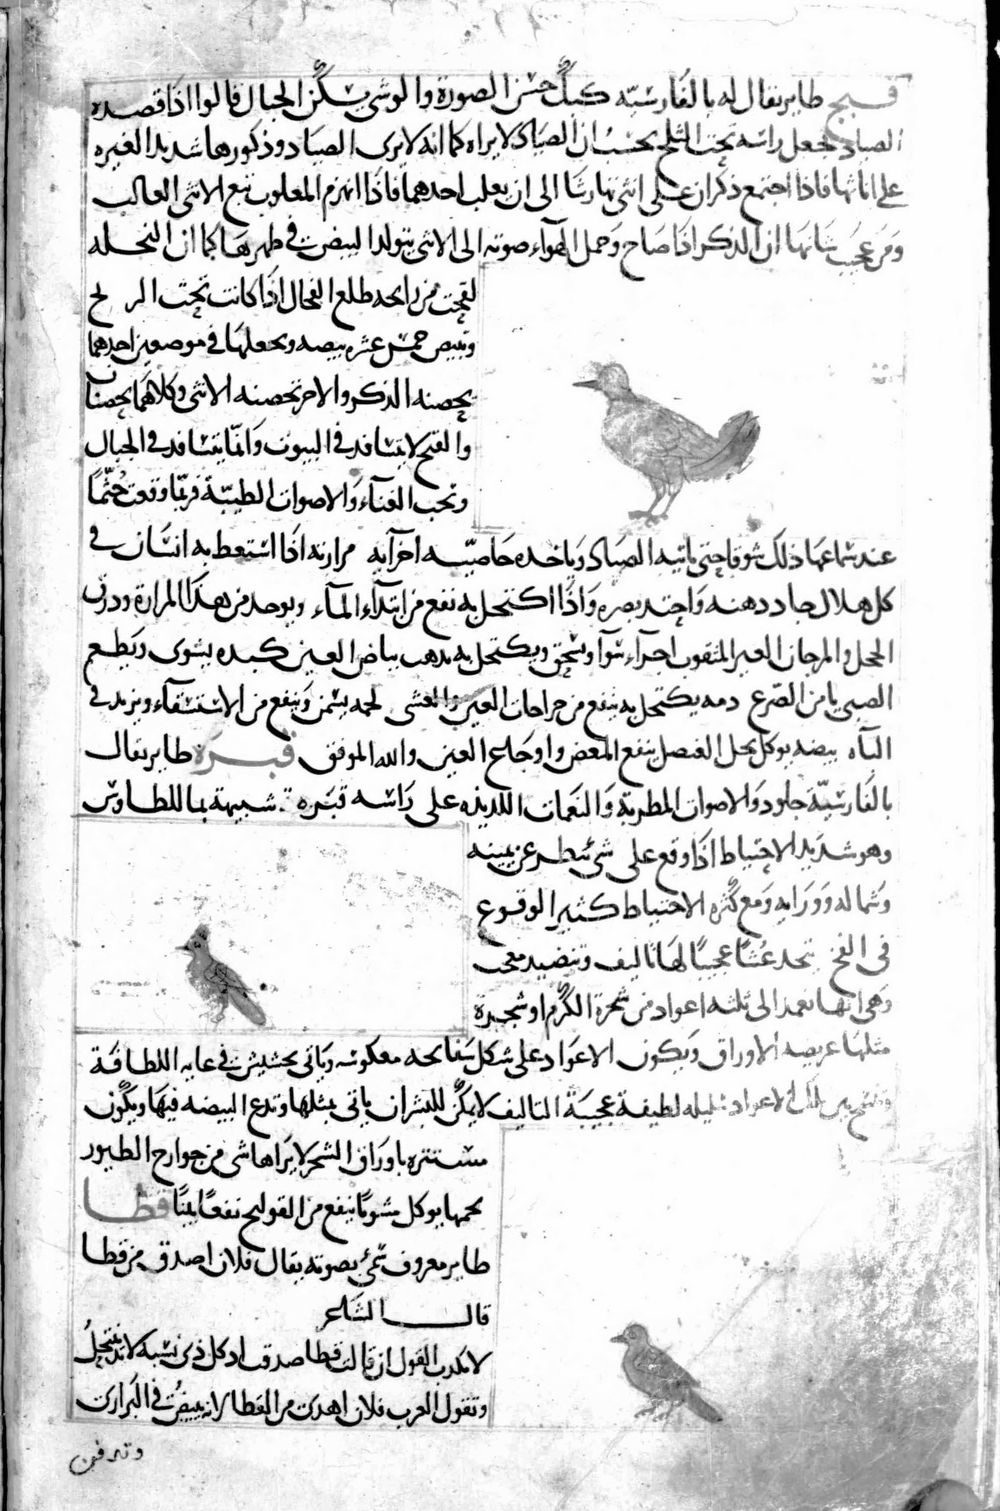 قبج طاير يقال له بالفارسيه كبك حسن الصورة والوشى يسكن الجبال قالوا اذا قصده
الصياد يجعل راسه تحت الثلج يحسب ان الصياد لا يراه كما انه لا يرى الصياد وذكورها شديد الغيره
على اناثها فاذا اجتمع ذكران على انثى تهارشا الى ان يغلب احدهما فاذا انهزم المغلوب تبع الانثى الغالب
ومن عجيب شانها ان الذكر اذا صاح وحمل الهواء صوته الى الانثى يتولد البيض فى ظهرها كما ان النخله
لقحت من رايحه طلع الفحال اذا كانت تحت الريح
وتبيض خمس عشره بيضه ويجعلها فى موضعين احدهما
يحضنه الذكر والاخر تحضنه الانثى وكلاهما يحضنان
والقبج لا يتسافد فى البيوت وانما يتسافد فى الجبال
وتحب الغناء والاصوات الطيبة فربما وقعت جثما
عند سماعها ذلك شوقا حتى ياتيه الصياد وياخذه خاصيه اجزآيه مرارته اذا استعط به انسان فى
كل هلال جاد ذهنه واحتد بصره واذا اكتحل به نفع من ابتدآء المآء ويوخذ من هذا المرارة ودرق
الحجل والمرجان الغير المثقوب اجزاء سوا وتسحق ويكتحل به يذهب بياض العين كبده يشوى ويطعم
الصبى يامن الصرع دمه يكتحل به ينفع من جراحات العين والعشى لحمه يسمن وينفع من الاستسقاء ويزيد فى
الباه بيضه يوكل بخل العنصل ينفع المغص واوجاع العين والله الموفق قبرة طاير يقال
بالفارسية جلود والاصوات المطربة والنغمات اللذيذه على راسه قنبره شبيهة بما للطاوس
وهو شديد الاحتياط اذا وقع على شى ينظر عن يمينه
وشماله وورايه ومع كثره الاحتياط كثير الوقوع
فى الفخ تتخذ عشا عجيبا لها تاليف وتنضيد معجب
وهى انها تعمد الى ثلثه اعواد من شجرة الكرم او شجرة
مثلها عريضه الاوراق ويكون الاعواد على شكل سفايحه معكوسه وياتى بحشيش فى غايه اللطافة
وتنسج بين تلك الاعواد سليله لطيفة عجيبة التاليف لا يمكن للبشران ياتى بمثلها وتدع البيضه فيها ويكون
مستتره باوراق الشجر لا يراها شى من جوارح الطيور
لحمها يوكل مشويا ينفع من القولنج نفعا بينا قطا
طاير معروف سمى بصوته يقال فلان اصدق من قطا
قال الشاعر
لا تكذب القول ان قالت قطا صدقت اذ كل ذى نسبه لا بد ينتحل
وتقول العرب فلان اهدى من القطا لانه يبيض فى البرارى
وتدفن